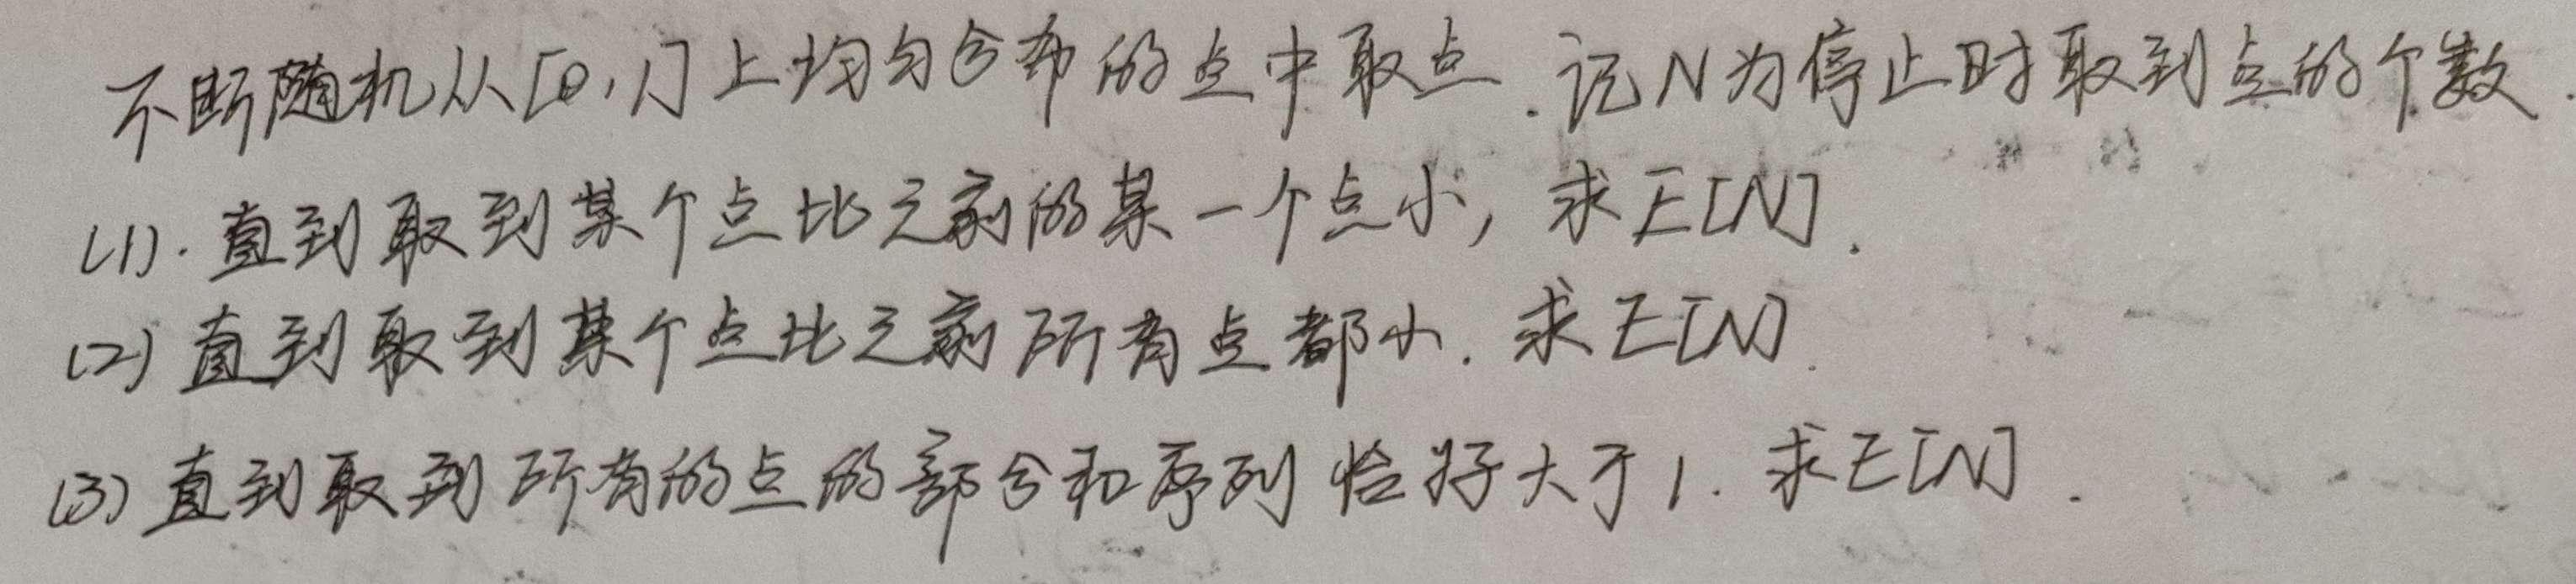 不断随机从[0,1]上均匀分布的点中取点.记N为停止时取到点的个数.
(1).直到取到某个点比之前的某一个点小,求E[N].
(2)直到取到某个点比之前所有点都小.求E[N].
(3)直到取到所有的点的部分和序列恰好大于1.求E[N].